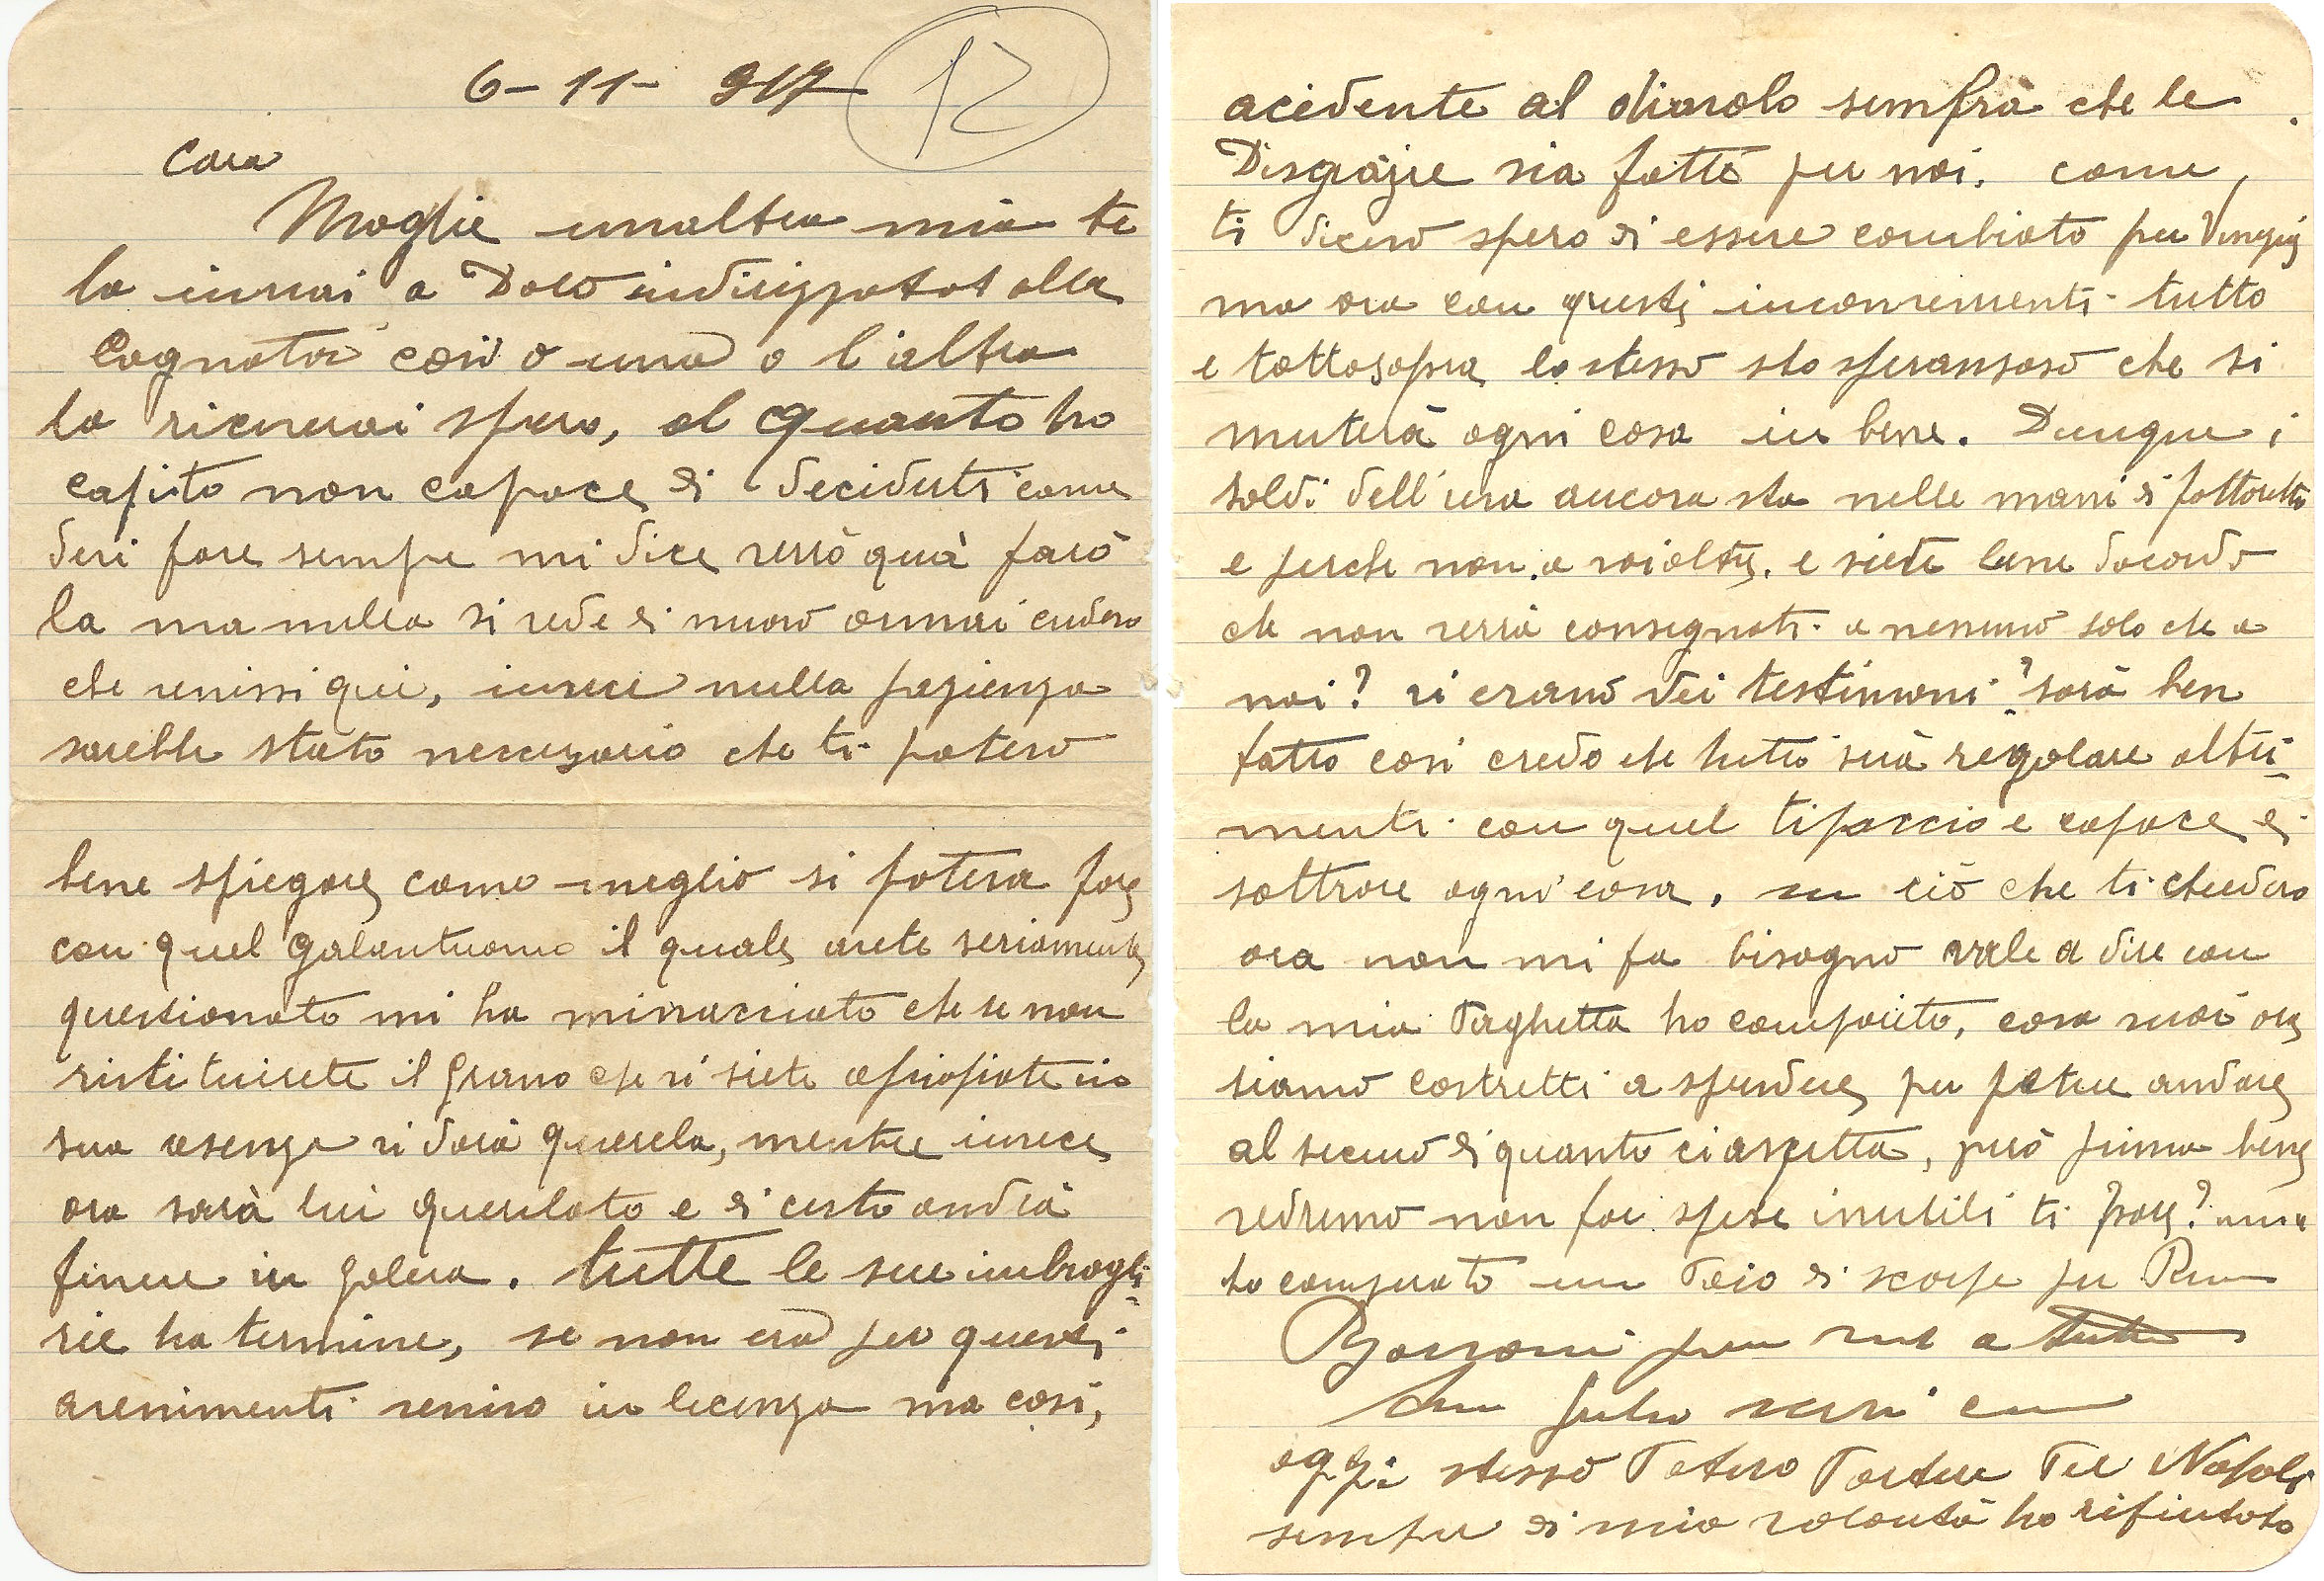 6-11-917
12
Cara
Moglie unaltra mia te
la inviai a Dolo indirizzatat alla
Cognata così o una o l'altra
la riceverai spero, al quanto ho
capito non capace di deciduti come
devi fare sempre mi dice verrò quà farò
la ma nulla si vede di nuovo ormai credevo
che venissi qui, invece nulla pazienza
sarebbe stato necessario che ti potevo
bene spiegare come meglio si poteva fare
con quel galantuomo il quale avete seriamente
questionato mi ha minacciato che se non
ristituirete il grano che vi siete apropiate in
sua asenza vi darà querela, mentre invece
ora sarà lui querelato e di certo andrà
finire in galera. tutte le sue imbrogli=
rie ha termine, se non era per questi
avenimenti venivo in licenza ma così,
acidente al diavolo sembra che le
Disgrazie sia fatte per noi. come,
ti dicevo spero di essere cambiato per Venezia
ma ora con questi inconvenienti tutto
e tottosopra lo stesso sto speransoso che si
muterà ogni cosa in bene. Dunque i
soldi dell'uva ancora sta nelle mani di fattoretto
e perche non a voialtri. e siete bene dacordo
che non verrà consegnati a nessuno solo che a
noi? vi erano dei testimoni? sarà ben
fatto così credo che tutto sarà regolare altri=
menti con quel tipaccio e capace di
sottrare ogni cosa. su ciò che ti chiedevo
ora non mi fa bisogno vale a dire con
la mia Paghetta ho comparito, cosa vuoi ora
siamo costretti a spendere per potere andare
al sicuro di quanto ci aspetta, però prima bene
vedremo non fai spese inutili ti pare?
ho comperato un Paio di scarpe per
a tutti
oggi stesso Potevo Partire Per Napoli
sempre di mia volontà ho rifiutato